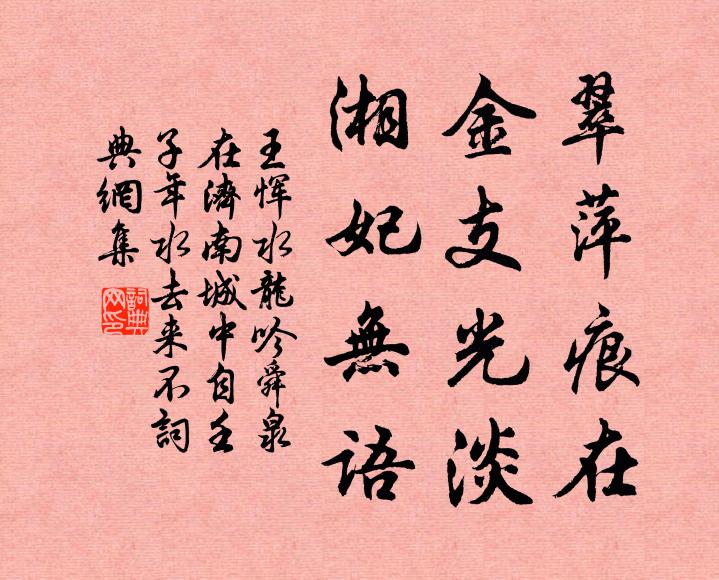 翠萍痕在
金支光淡
湘妃無語
王惲水龍吟舜泉
在濟南城中自壬
子年水去来不詞
典網集
詞典
网印